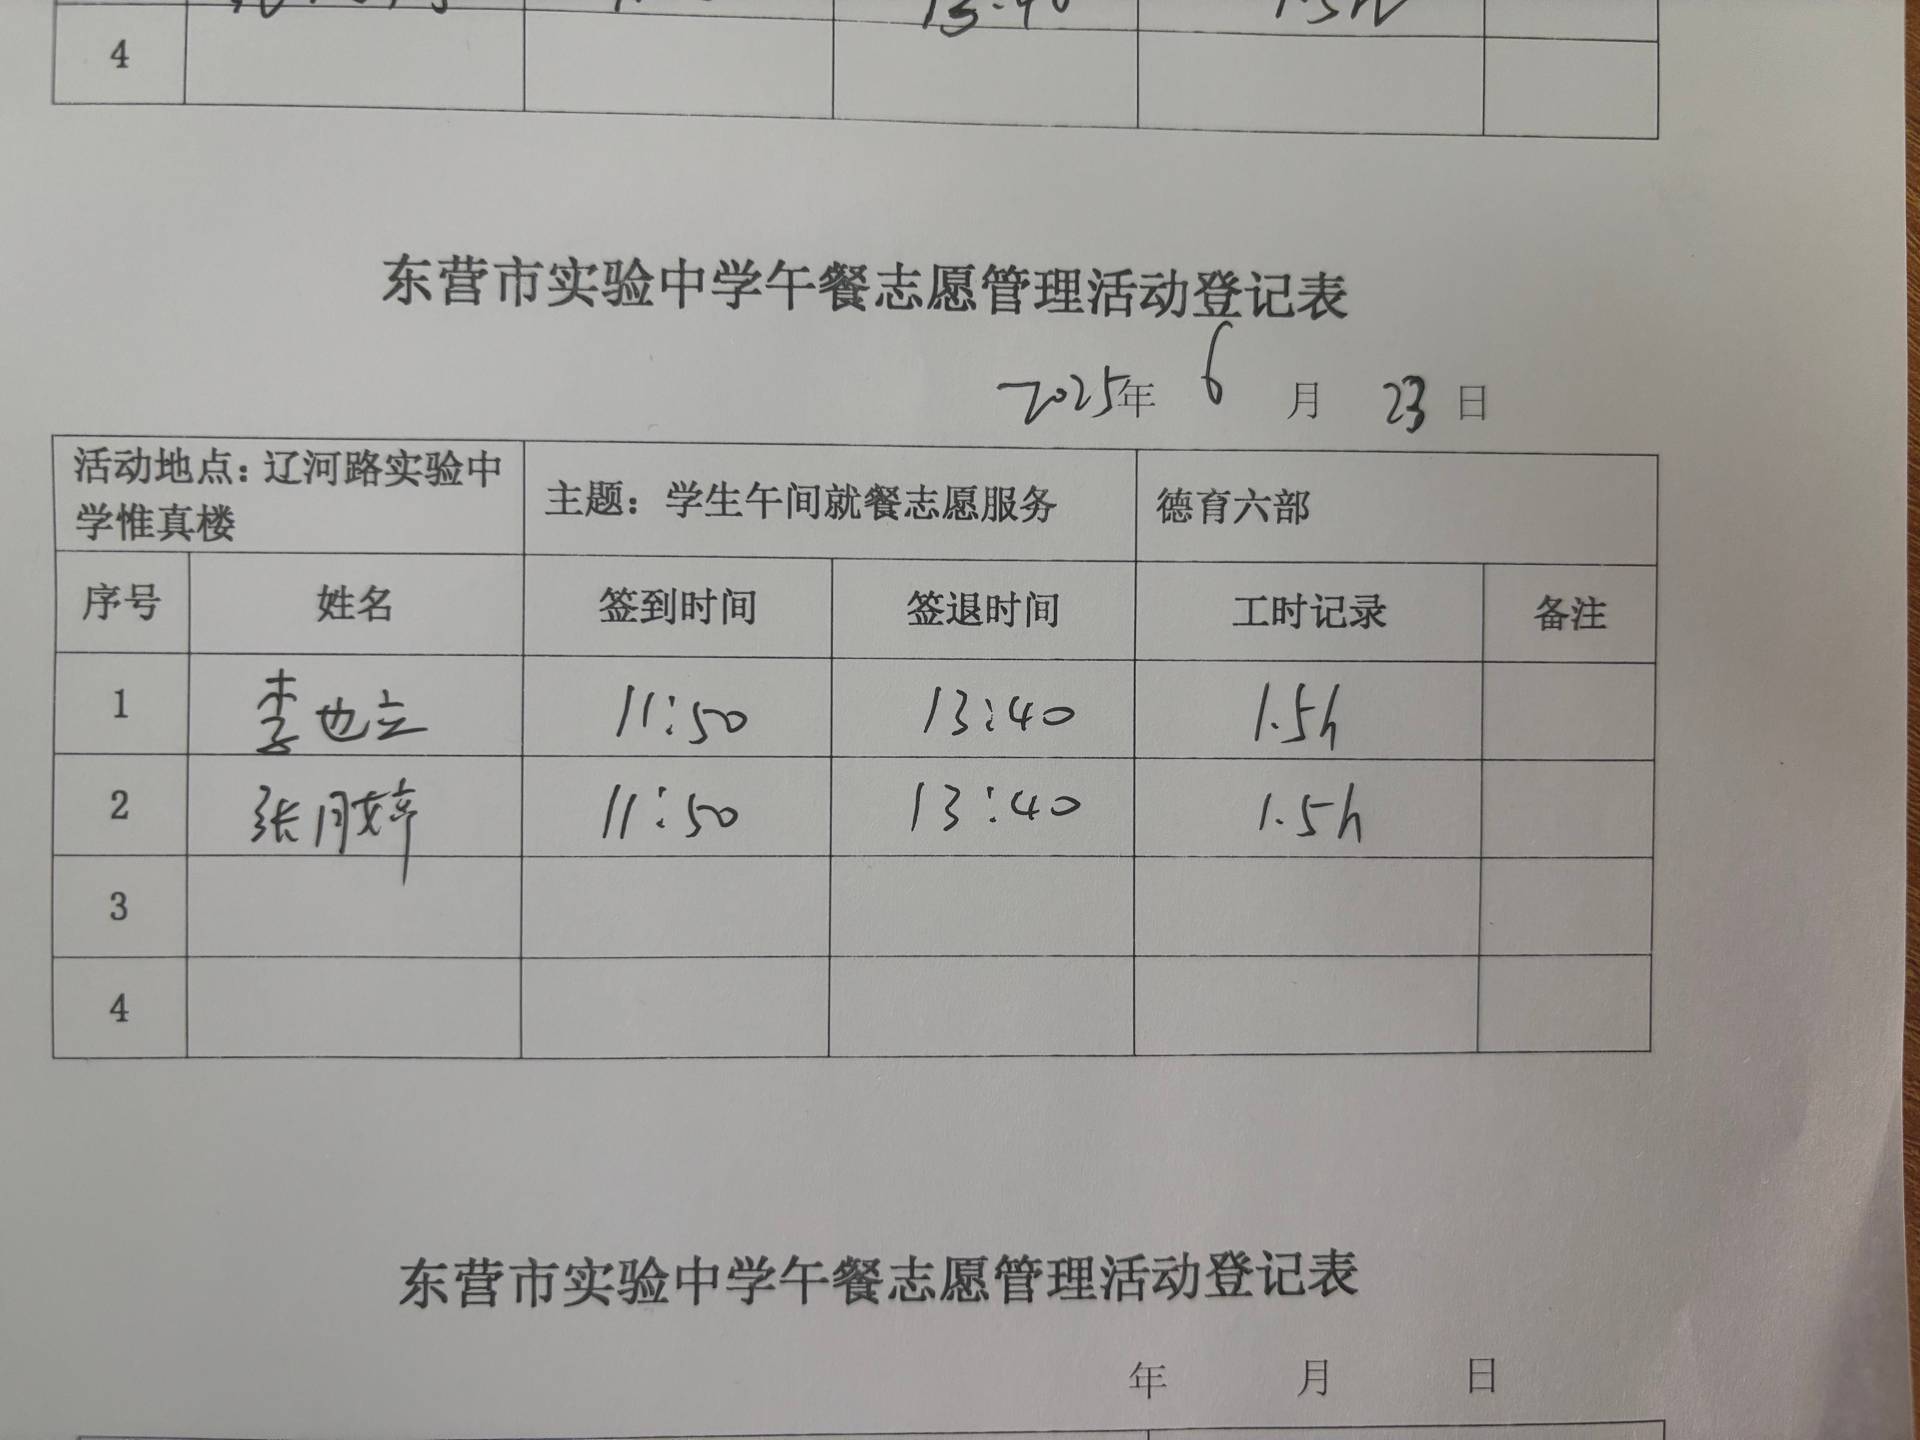 13:40
4
东营市实验中学午餐志愿管理活动登记表
2025年 6 月 23 日
活动地点：辽河路实验中
学惟真楼
主题：学生午间就餐志愿服务
德育六部
序号 姓名 签到时间 签退时间 工时记录 备注
1 李也立 11:50 13:40 1.5h
2 张月婷 11:50 13:40 1.5h
3
4
东营市实验中学午餐志愿管理活动登记表
年 月 日